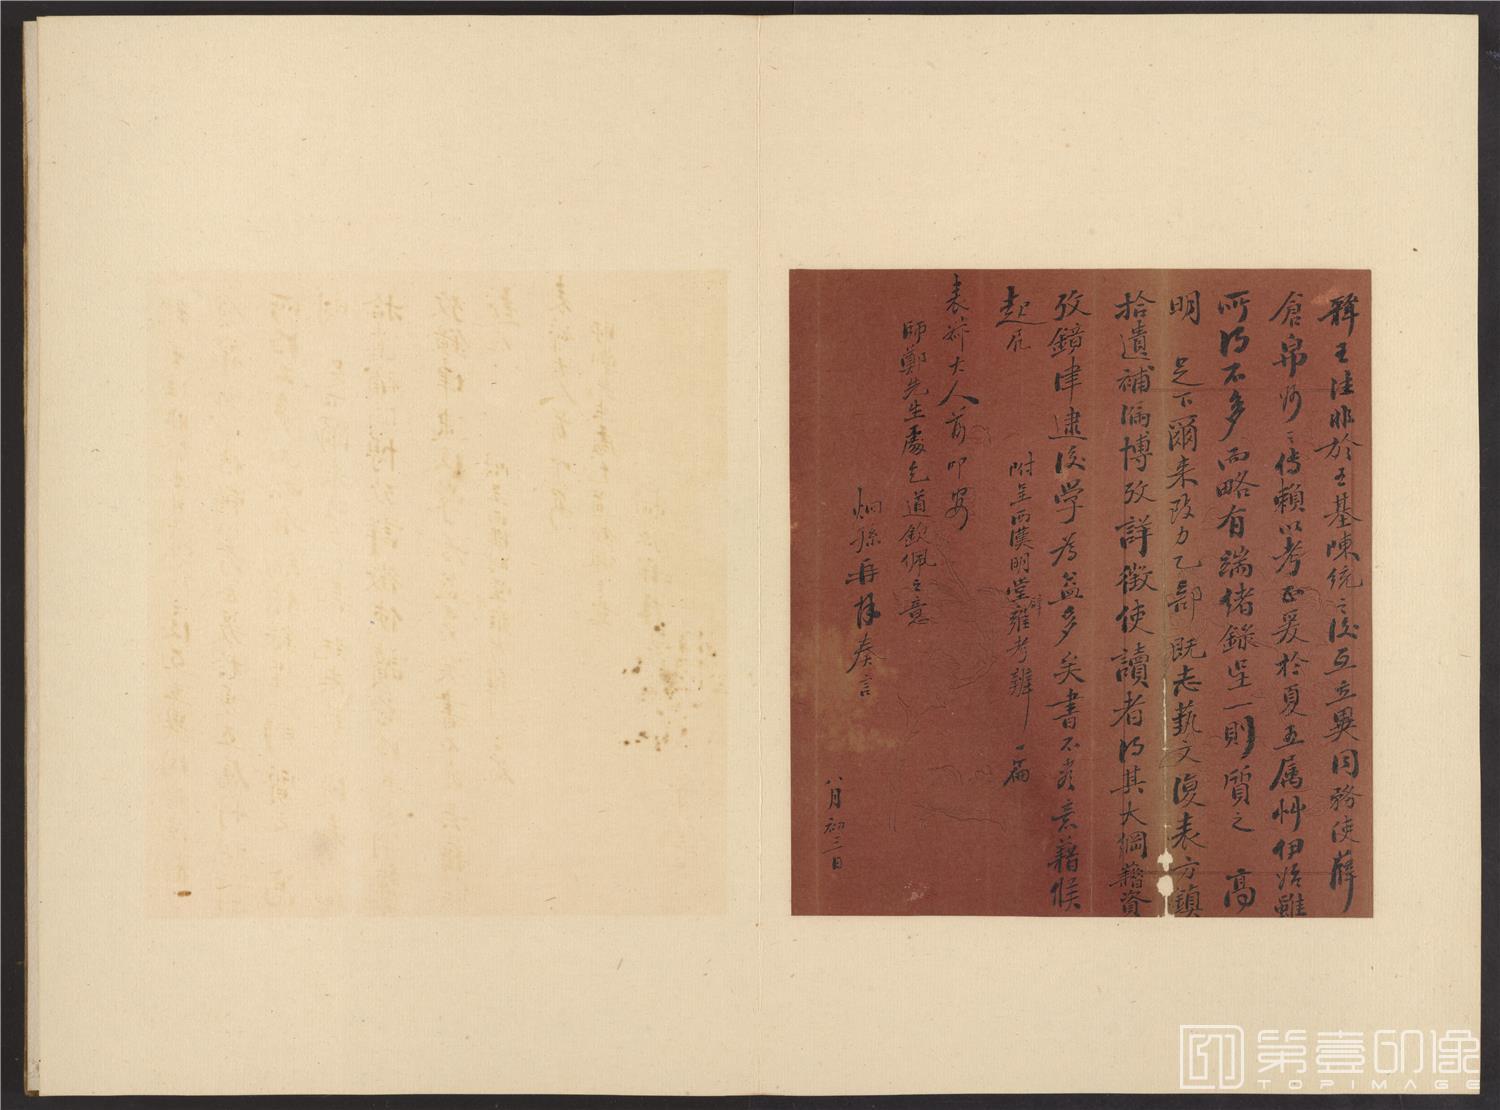 韓王法非於王基陳統之後互立異同務使薜
倉帛妙〻傳賴以考正爰於夏五属艸伊始雖
所得不多而略有端緒錄呈一則質之 高
明 足下爾来改力乙部既志藝文復表方鎮
拾遺補漏博攷詳徵使讀者得其大綱藉資
攷鏡津逮後学為益多矣書不尽意藉候
起居 附呈西漢明堂辟雍考辨一篇
表大人前叩安
師鄭先生處乞道欽佩之意
炯孫再拜奏言
八月初三日
第壹印像
TOPIMAGE